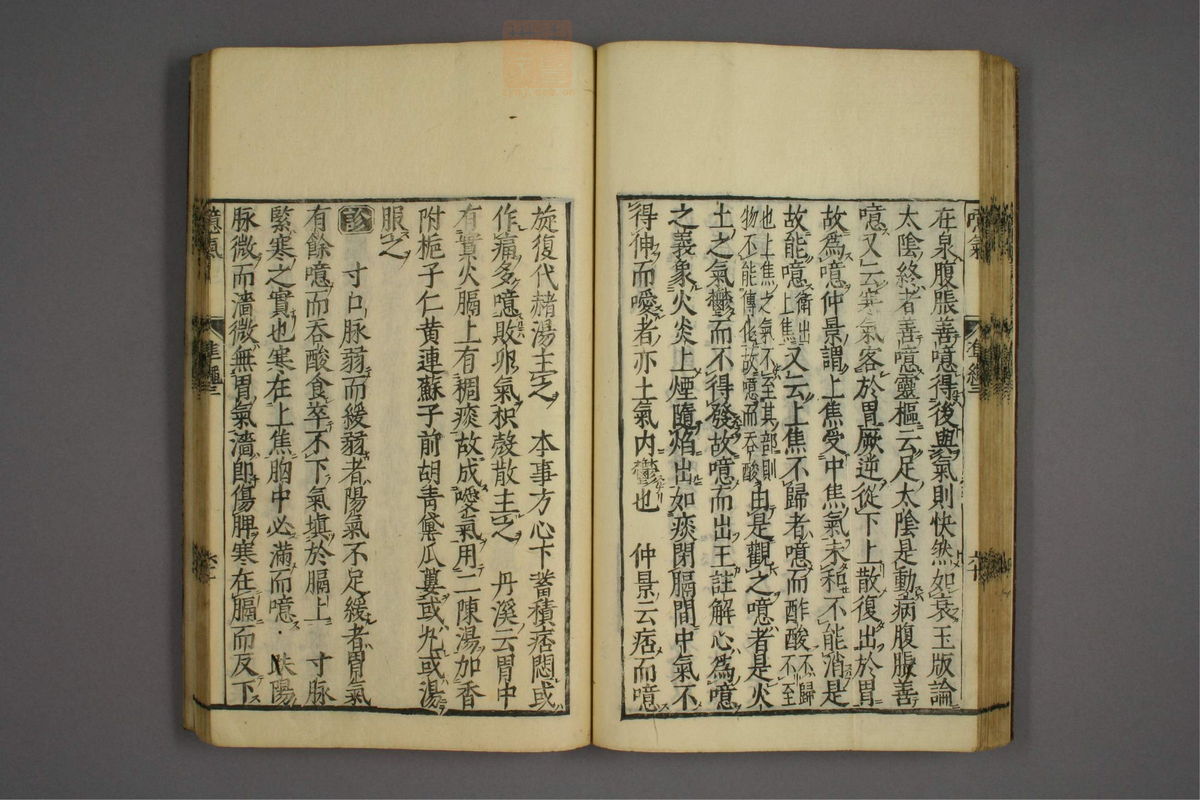 在泉腹脹善噫得後與氣則快然如衰玉版論
太陰終者善噫靈樞云足太陰是動病腹脹善
噫又云寒氣客於胃厥逆從下上散復出於胃
故爲噫仲景謂上焦受中焦氣未和不能消是
故能噫衛出上焦又云上焦不歸者噫而酢酸不歸不至
也上焦之氣不至其部則物不能傳化故噫而吞酸由是觀之噫者是火
土之氣鬱而不得發故噫而出王註解心爲噫
之義象火炎上煙隨焰出如痰閉膈間中氣不
得伸而噯者亦土氣内鬱也 仲景云痞而噫
旋復代赭湯主之 本事方心下蓄積痞悶或
作痛多噫敗卵氣枳殼散主之 丹溪云胃中
有實火膈上有稠痰故成噯氣用二陳湯加香
附梔子仁黄連蘇子前胡青黛瓜蔞或丸或湯
服之
診 寸口脉弱而緩弱者陽氣不足緩者胃氣
有餘噫而吞酸食卒不下氣填於膈上 寸脉
緊寒之實也寒在上焦胸中必滿而噫 趺陽
脉微而濇微無胃氣濇即傷脾寒在膈而反下
噫氣